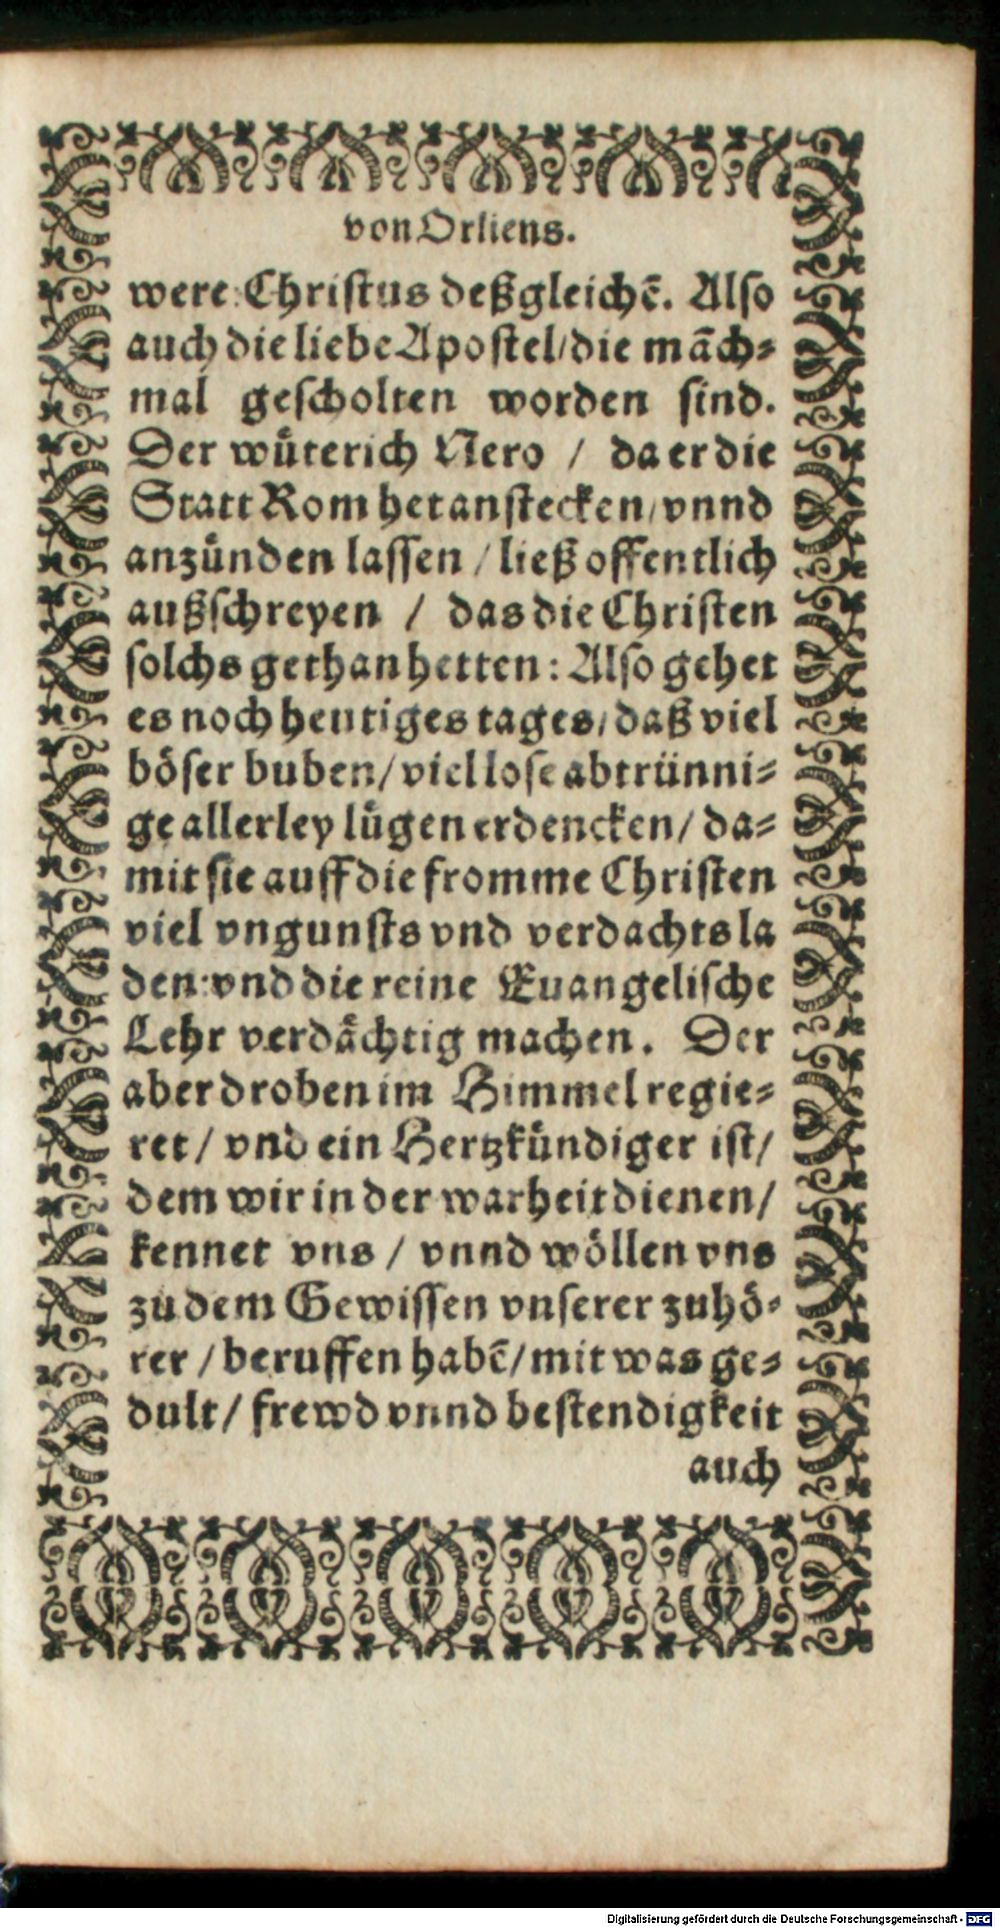 von Orliens.
were: Christus deßgleichē. Also
auch die liebe Apostel/ die māch⸗
mal gescholten worden sind.
Der wuͤterich Nero / da er die
Statt Rom het anstecken/ vnnd
anzuͤnden lassen / ließ offentlich
außschreyen / das die Christen
solchs gethan hetten: Also gehet
es noch heutiges tages/ daß viel
boͤser buben/ viel lose abtruͤnni⸗
ge allerley luͤgen erdencken/ da⸗
mit sie auff die fromme Christen
viel vngunsts vnd verdachts la
den: vnd die reine Euangelische
Lehr verdaͤchtig machen. Der
aber droben im Himmel regie⸗
ret/ vnd ein Hertzkuͤndiger ist/
dem wir in der warheit dienen/
kennet vns / vnnd woͤllen vns
zu dem Gewissen vnserer zuhoͤ⸗
rer / beruffen habē/ mit was ge⸗
dult/ frewd vnnd bestendigkeit
auch
Digitalisierung gefördert durch die Deutsche Forschungsgemeinschaft - DFG